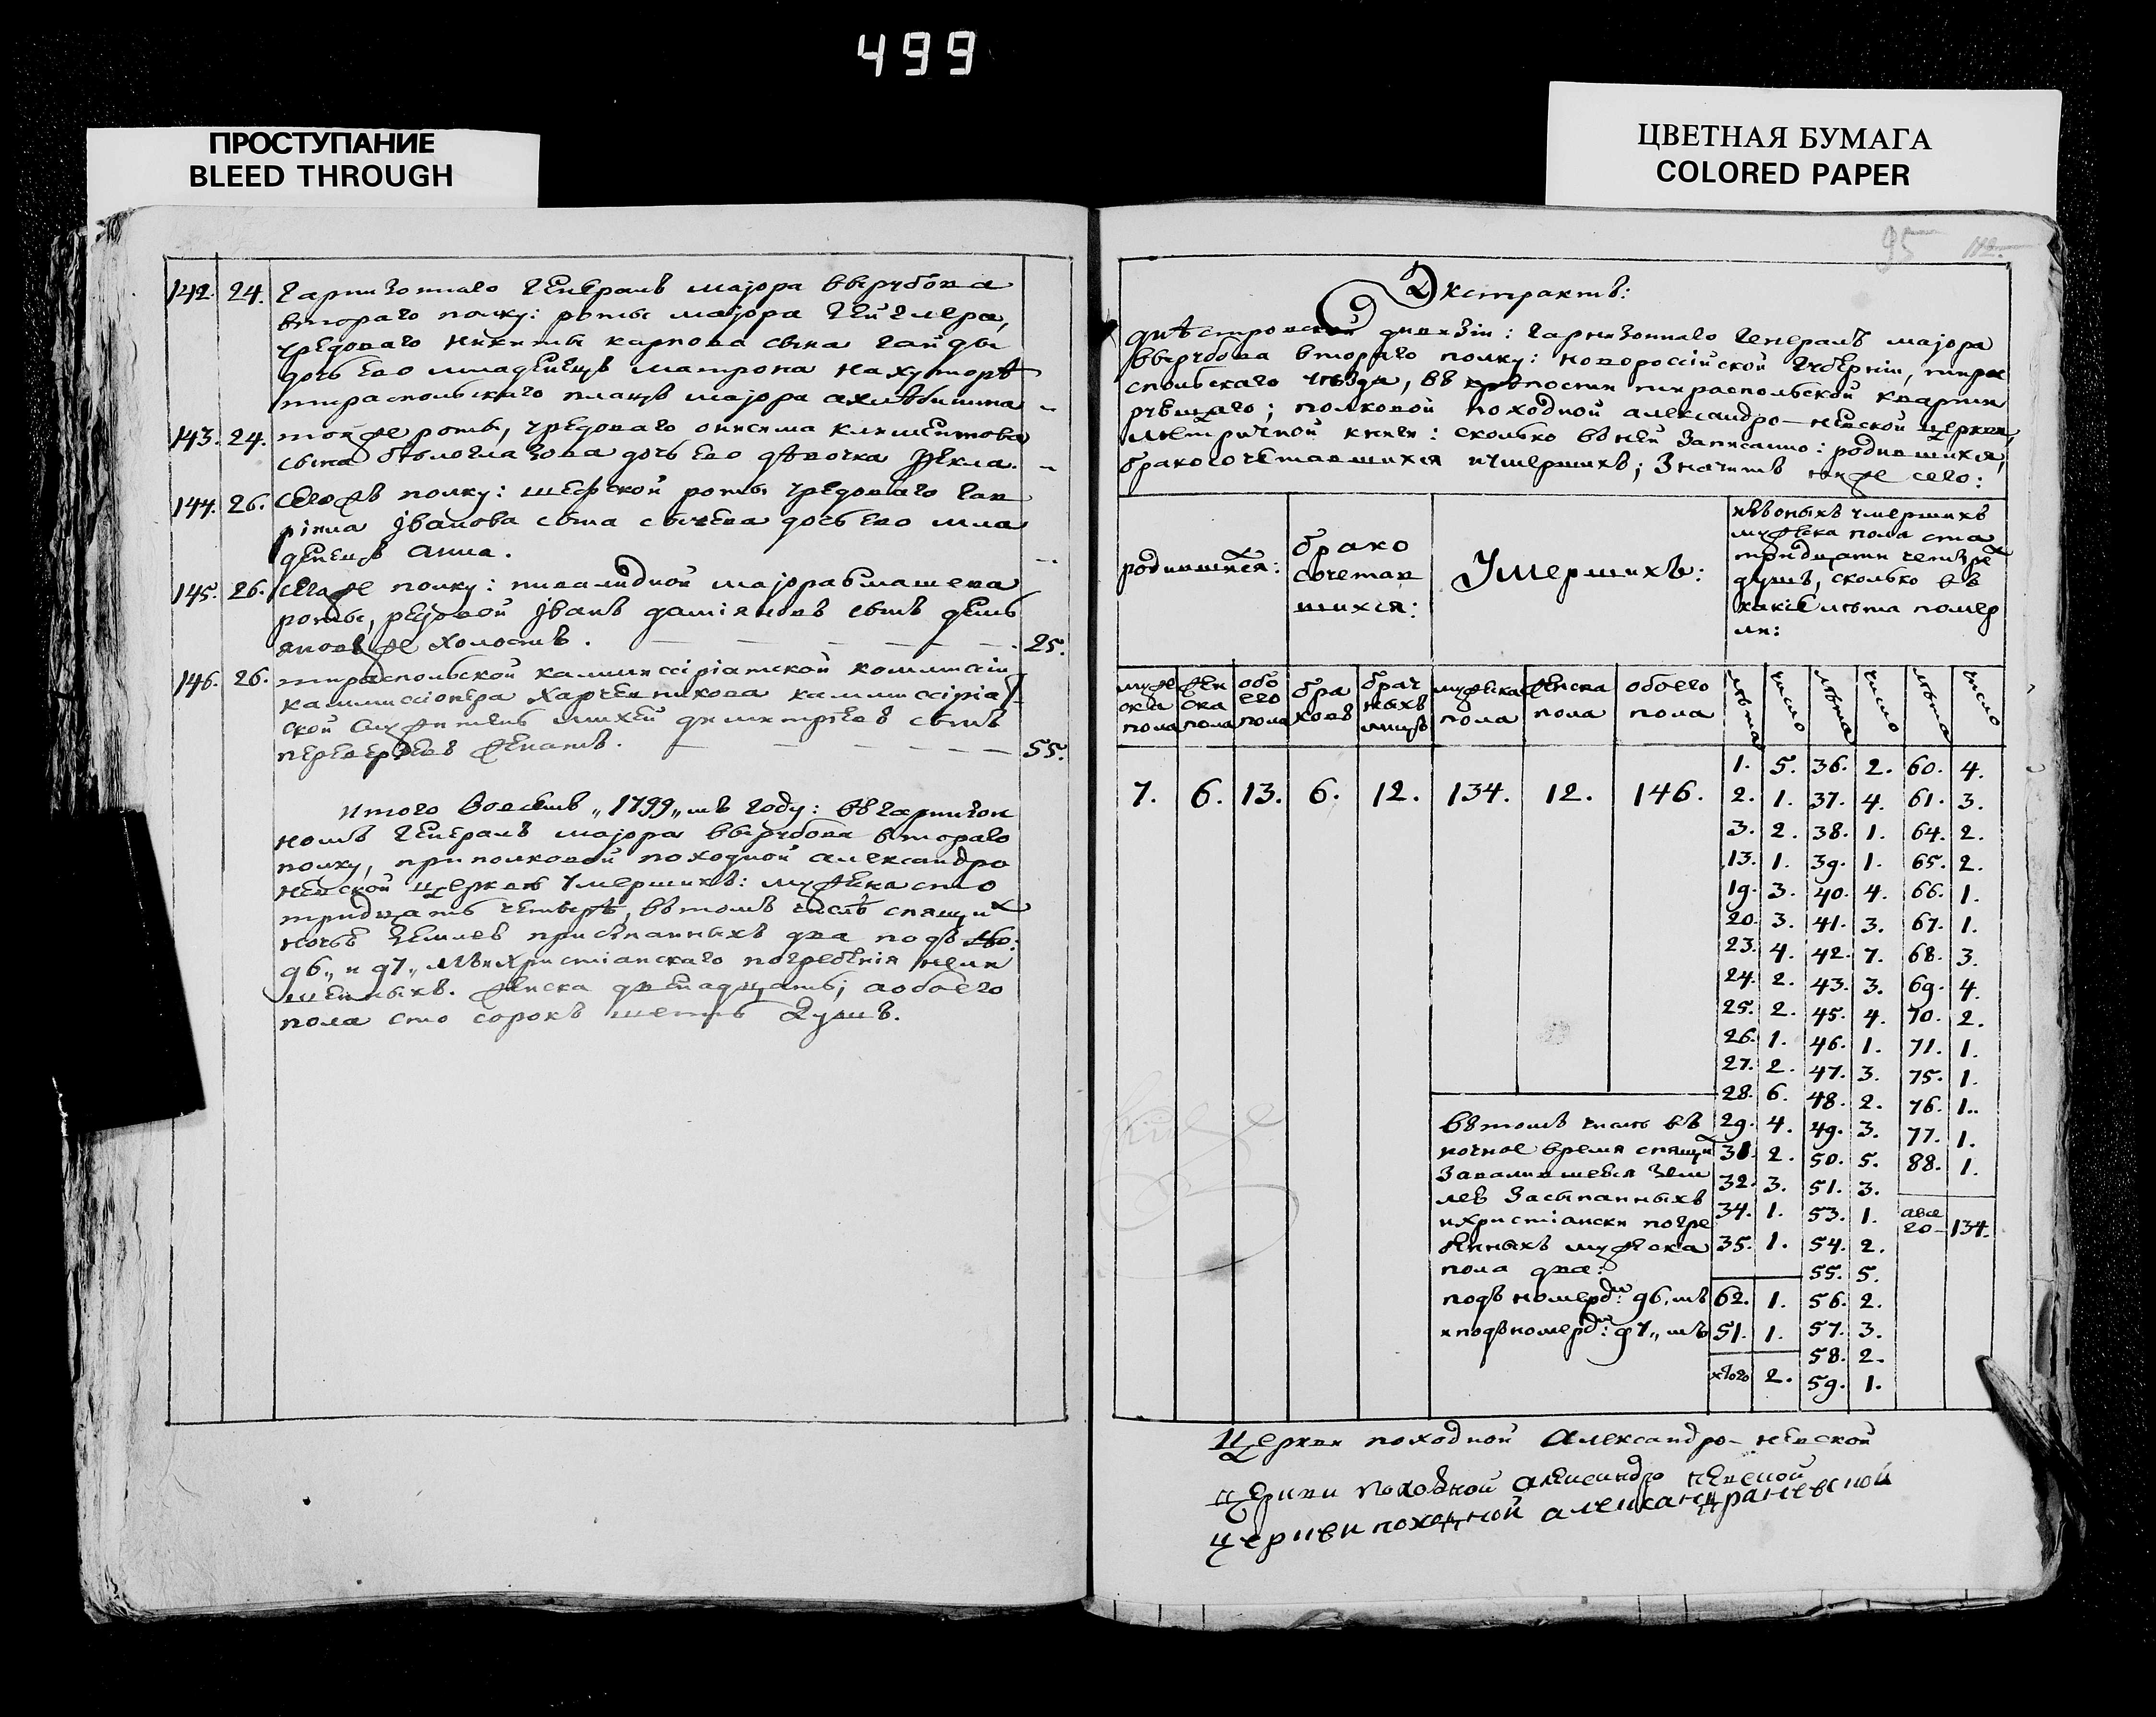 499
ПРОСТУПАНИЕ
BLEED THROUGH
ЦВЕТНАЯ БУМАГА
COLORED PAPER
142. 24. гарнизоннаго генералъ маіора вырубова
втораго полку: роты маіора
рядоваго никиты карпова сына гайды
дочь его младенецъ матрона на хуторѣ
тираспольскаго плацъ маіора
143. 24. тойже роты, рядоваго онисима климентова
сына бѣлоглазова дочь его дѣвочка Фекла.
144. 26. сегожъ полку: шефской роты рядоваго гав
ріила Іванова сына сычева дочь его мла
денецъ анна.
145. 26. сегоже полку: инвалидной маіора
роты, рядовой Іванъ даміановъ сынъ демь
яновъ же холостъ. 25.
146. 26. тираспольской каммиссіріатской коммісіи
каммиссіонера харченкова каммиссіріат
ской служитель михей димитріевъ сынъ
женатъ. 55.
итого вовсемъ „1799„ мъ году: въ гарнизон
номъ генералъ маіора вырубова втораго
полку, при полковой походной александро
невской церквѣ умершихъ: мужеска сто
тридцать четыре, въ томъ числѣ спящих
ночью землею присыпанныхъ два подъ №:
96„ и 97„ мъ и християнскаго погребенія нели
шенныхъ. женска двенадцать; а обоего
пола сто сорокъ шесть душъ.
95
112.
Экстрактъ:
днѣстровской дивизіи: гарнизоннаго генералъ маіора
вырубова втораго полку: новороссійской губерніи, тирас
польскаго уѣзда, въ крѣпости тираспольской кварти
рующаго; полковой походной александро-невской церкви,
метричной книги: сколько в оней записанно: родившихся,
бракосочетавшихся и умершихъ; значитъ ниже сего:
родившихся:
брако
сочетав
шихся:
Умершихъ:
изъ оныхъ умершихъ
мужеска пола ста
тридцати четырех
душъ, сколько въ
какіе лѣта помер
ли:
муже
ска
пола
жен
ска
пола
обо
его
пола
бра
ковъ
брач
ныхъ
лицъ
мужеска
пола
женска
пола
обоего
пола
лѣта число лѣта число лѣта число
7. 6. 13. 6. 12. 134. 12. 146.
1. 5. 36. 2. 60. 4.
2. 1. 37. 4. 61. 3.
3. 2. 38. 1. 64. 2.
13. 1. 39. 1. 65. 2.
19. 3. 40. 4. 66. 1.
20. 3. 41. 3. 67. 1.
23. 4. 42. 7. 68. 3.
24. 2. 43. 3. 69. 4.
25. 2. 45. 4. 70. 2.
26. 1. 46. 1. 71. 1.
27. 2. 47. 3. 75. 1.
28. 6. 48. 2. 76. 1.
29. 4. 49. 3. 77. 1.
31. 2. 50. 5. 88. 1.
32. 3. 51. 3.
34. 1. 53. 1. а все
го 134.
35. 1. 54. 2.
55. 5.
въ томъ числѣ въ
ночное время спящих
завалившеюся зем
лею засыпанныхъ
и християнски погре
бенныхъ мужеска
пола два:
подъ номером: 96. мъ 62. 1. 56. 2.
и подъ номером: 97„ мъ 51. 1. 57. 3.
58. 2.
итого 2. 59. 1.
Церкви походной Александро-невской
церкви походной александро невской
церкви походной александраневской